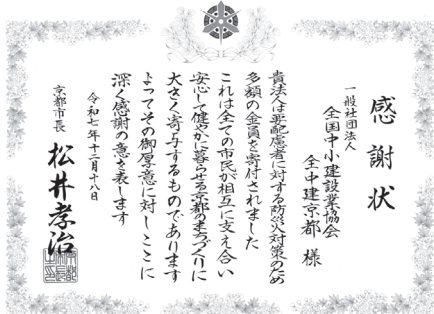 感謝状
一般社団法人
全国中小建設業協会
全中建京都 様
貴法人は要配慮者に対する防災対策のため
多額の金員を寄付されました
これは全ての市民が相互に支え合い
安心して健やかに暮らせる京都のまちづくりに
大きく寄与するものであります
よってその御厚意に対しここに
深く感謝の意を表します
令和七年十二月十八日
京都市長 松井孝治